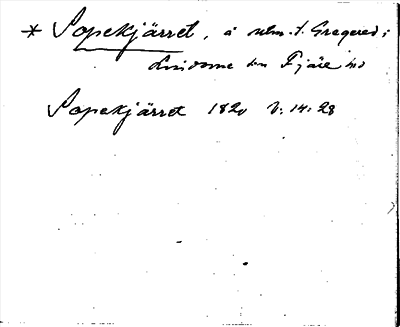 * Sopekjärret, å utm. t. Gregered i
Lindome sn Fjäre hd
Sopekjärret 1820 V: 14: 28